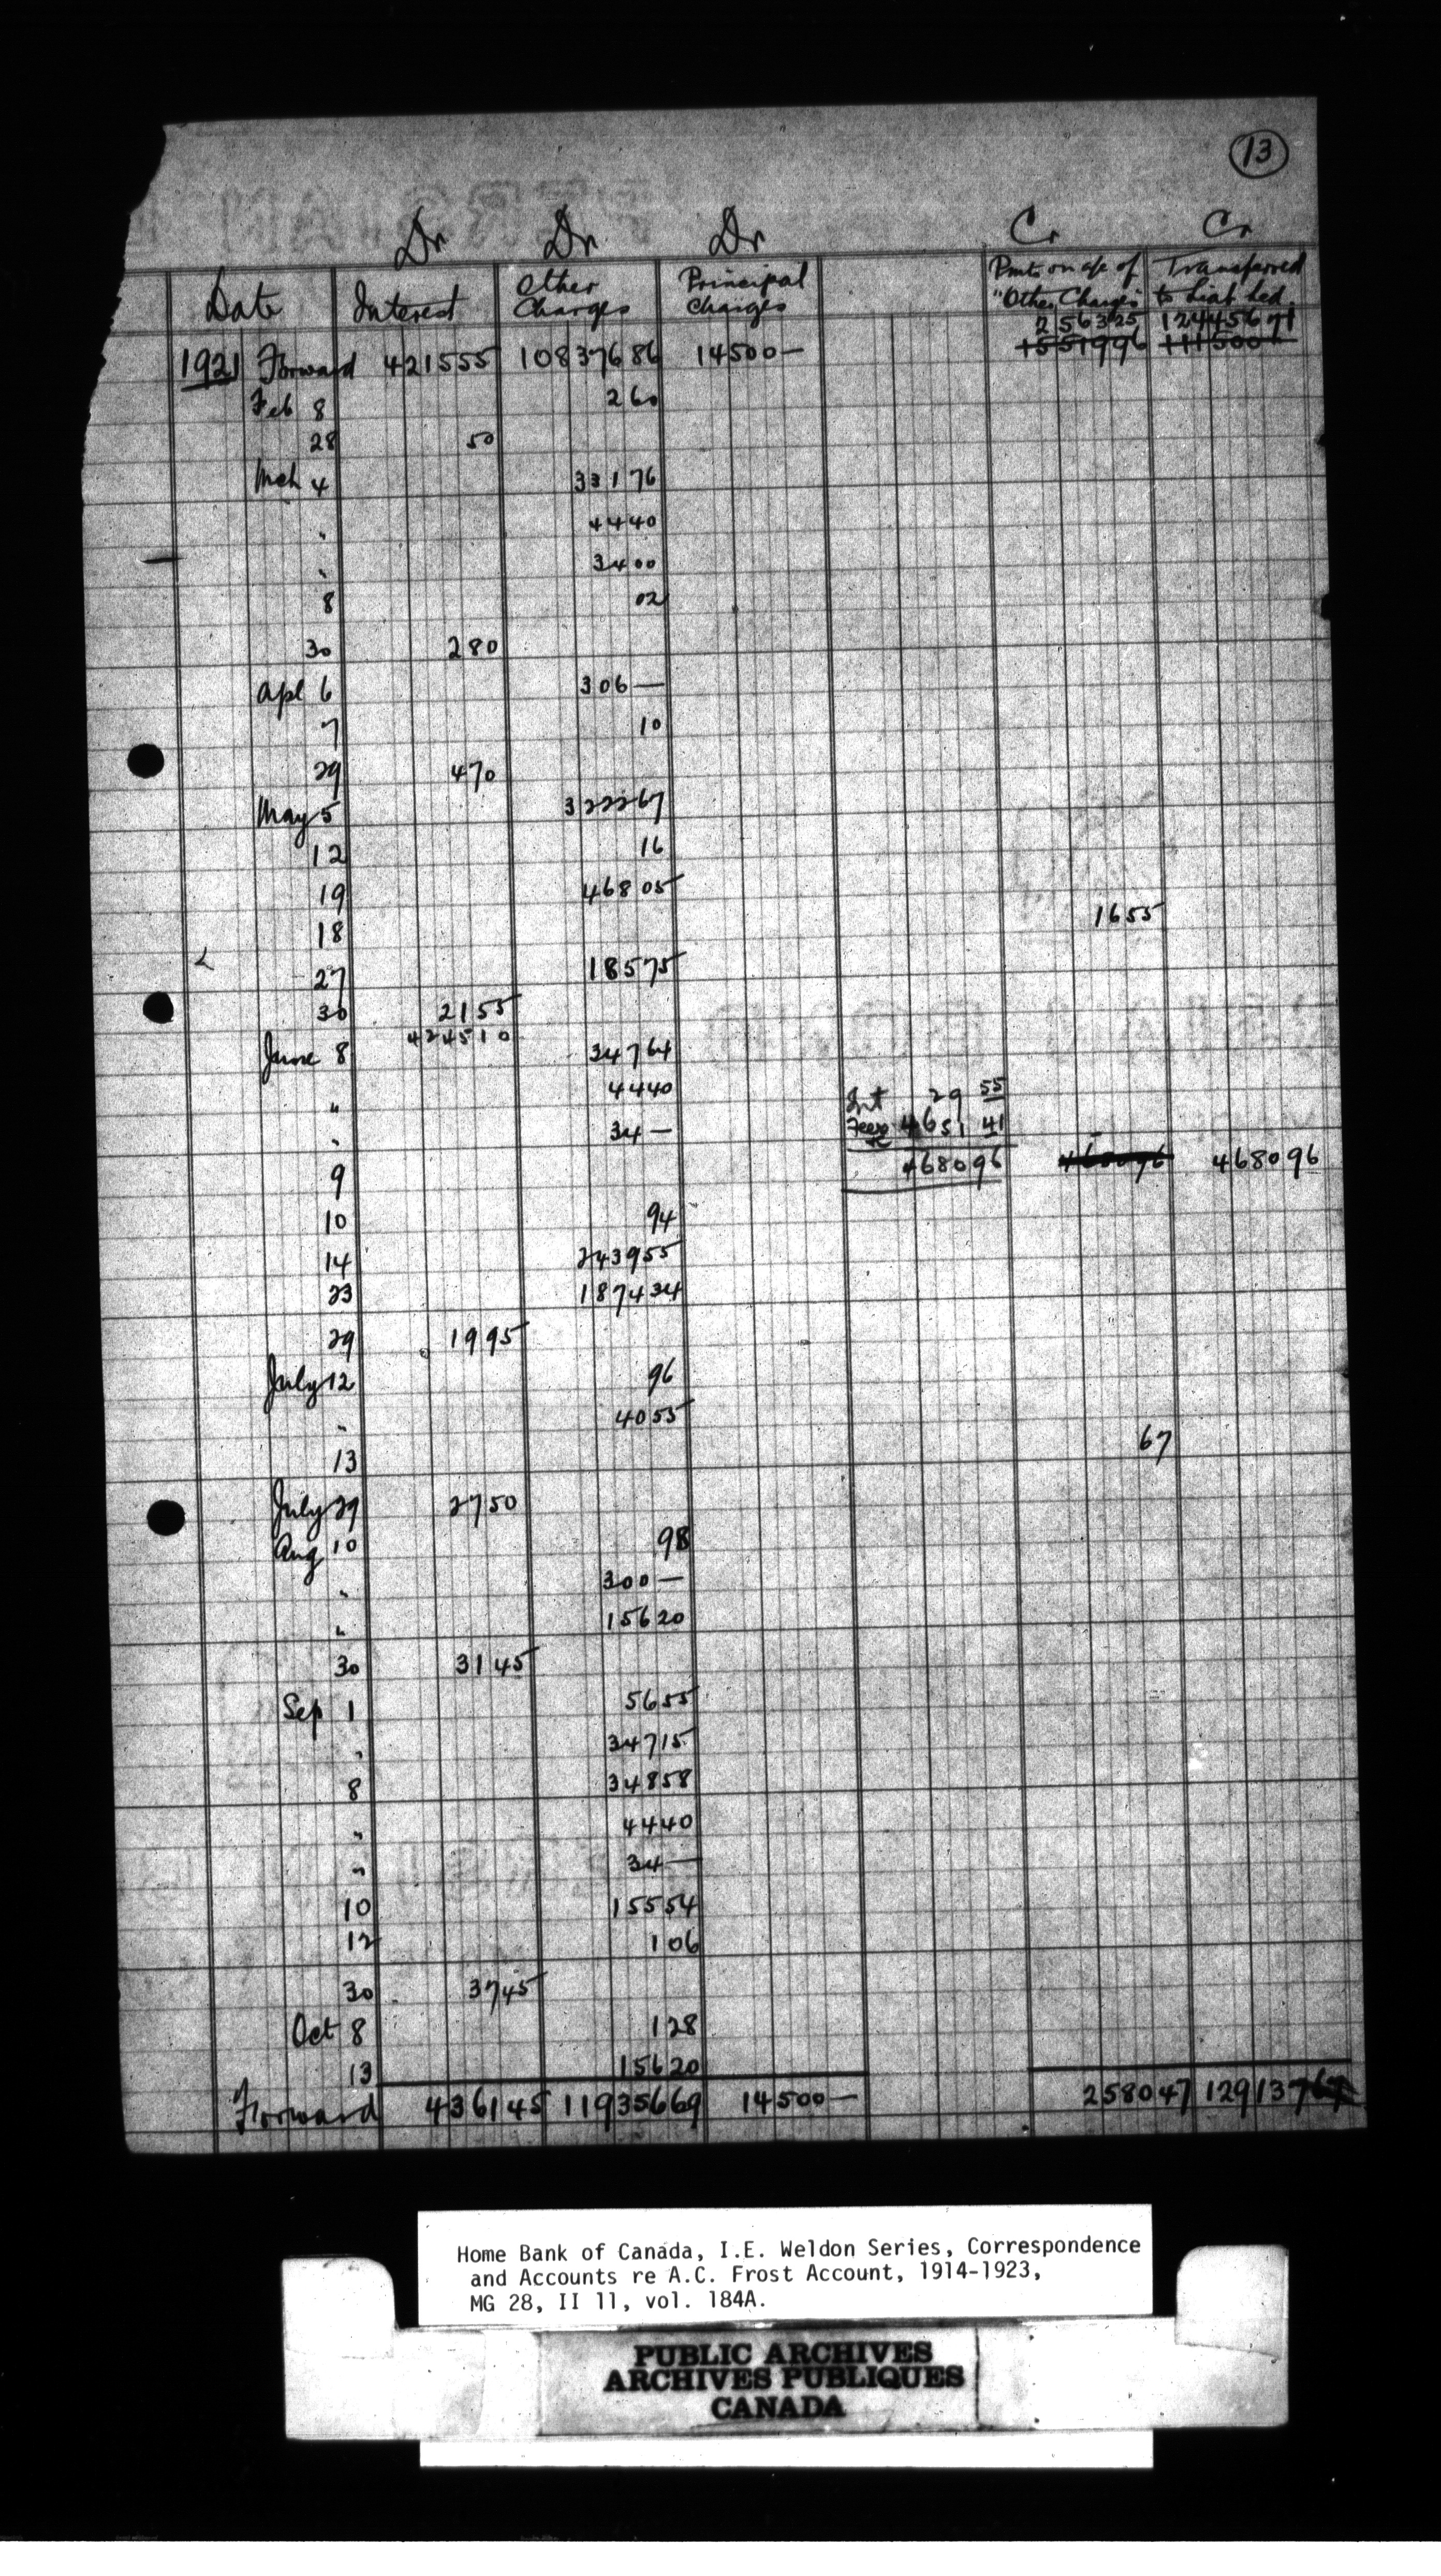 13
Dr Dr Dr Cr Cr
Date Interest Other Charges Principal Charges Pmts on a/c of "Other Charges" Transferred to Liab Led.
256325 12445671
1551996 1115006
1921 Forward 421555 10837686 14500—
Feb 8 260
28 50
Mch 4 33176
" 4440
" 3400
8 02
30 280
Apl 6 306—
7 10
29 470
May 5 322267
12 16
19 46805
18 1655
27 18575
30 2155
424510
June 8 34764
" 4440 Int 29 55
" 34— Fees 4651 41
9 468096 468096 468096
10 94
14 243955
23 187434
29 1995
July 12 96
" 4055
13 67
July 29 2750
Aug 10 98
" 300—
" 15620
30 3145
Sep 1 5655
" 34715
8 34858
" 4440
" 34—
10 15554
12 106
30 3745
Oct 8 128
13 15620
Forward 436145 11935669 14500— 258047 12913767
Home Bank of Canada, I.E. Weldon Series, Correspondence
and Accounts re A.C. Frost Account, 1914-1923,
MG 28, II 11, vol. 184A.
PUBLIC ARCHIVES
ARCHIVES PUBLIQUES
CANADA